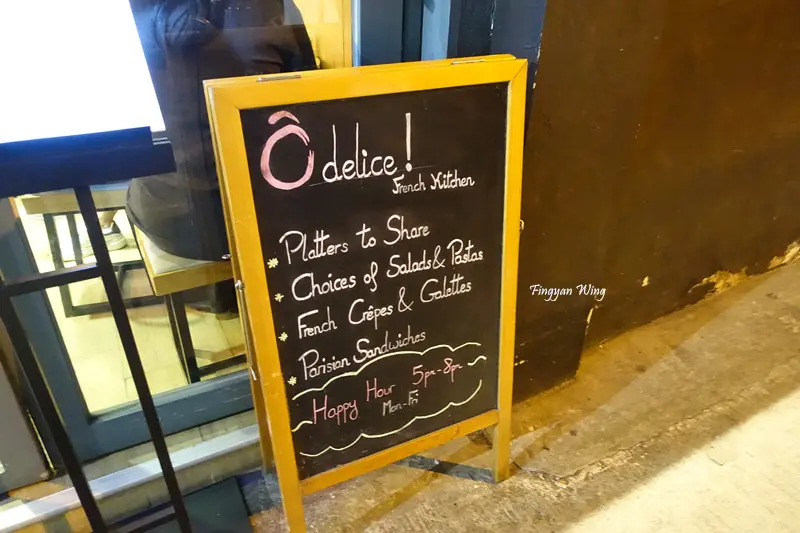 Ô delice!
French Kitchen
Platters to Share
Choices of Salads & Pastas
French Crêpes & Galettes
Parisian Sandwiches
Happy Hour 5pm-8pm
Mon-Fri
Fingyan Wing